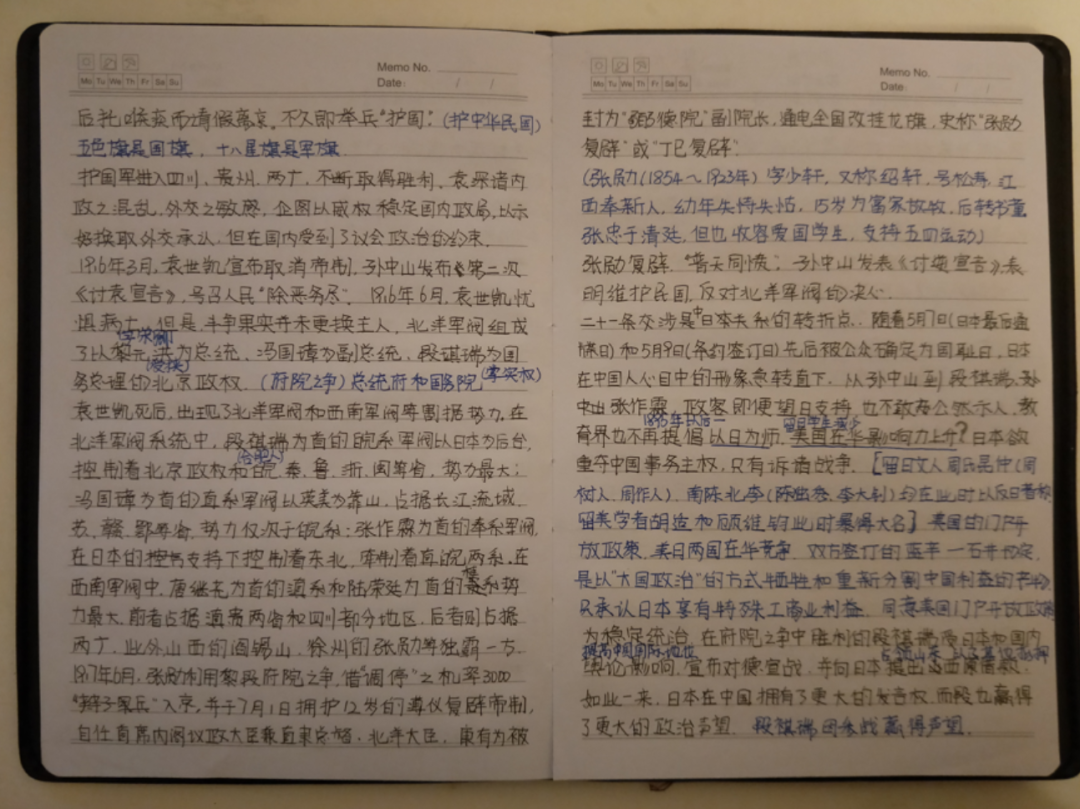 Memo No.
Mo Tu We Th Fr Sa Su
Date: / /
后托喉炎而请假离京。不久即举兵"护国"。(护中华民国)
五色旗是国旗，十八星旗是军旗
护国军进入四川、贵州、两广，不断取得胜利。袁深谙内
政之混乱，外交之敏感，企图以威权稳定国内政局，以示
好换取外交承认，但在国内受到了议会政治的约束。
1916年3月，袁世凯宣布取消帝制，孙中山发布《第二次
《讨袁宣告》，号召人民"除恶务尽"。1916年6月，袁世凯忧
惧病亡，但是，斗争果实并未更换主人，北洋军阀组成
(宋卿)
了以黎元洪为总统，冯国璋为副总统，段祺瑞为国
务总理的北京政权。(府院之争)总统府和国务院(掌实权)
袁世凯死后，出现了北洋军阀和西南军阀等割据势力，在
北洋军阀系统中，段祺瑞为首的皖系军阀以日本为后台，
(合肥人)
控制着北京政权和皖、秦、鲁、浙、闽等省，势力最大；
冯国璋为首的直系军阀以英美为靠山，占据长江流域，
苏、赣、鄂等省，势力仅次于皖系；张作霖为首的奉系军阀，
在日本的支持下控制着东北，牵制着直皖两系。在
西南军阀中，唐继尧为首的滇系和陆荣廷为首的桂系势
力最大，前者占据滇贵两省和四川部分地区，后者则占据
两广，此外山西的阎锡山、徐州的张勋等独霸一方。
1917年6月，张勋利用黎段府院之争，借"调停"之机率3000
"辫子军兵"入京，并于7月1日拥护12岁的溥仪复辟帝制，
自任首席内阁议政大臣兼直隶总督、北洋大臣，康有为被
Memo No.
Mo Tu We Th Fr Sa Su
Date: / /
封为"弼德院"副院长，通电全国改挂龙旗，史称"张勋
复辟"或"丁巳复辟"。
(张勋(1854～1923年)字少轩，又称绍轩，号松寿，江
西奉新人，幼年失恃失怙，15岁为富家放牧，后转书童
张忠于清廷，但也收容爱国学生，支持五四运动)
张勋复辟，"普天同愤"，孙中山发表《讨逆宣告》，表
明维护民国，反对北洋军阀的决心。
二十一条交涉是中日本关系的转折点，随着5月7日(日本最后通
牒日)和5月9日(条约签订日)先后被公众确定为国耻日，日本
在中国人心目中的形象急转直下。从孙中山到段祺瑞、孙
中山张作霖，政客即便望日支持，也不敢公然示人，教
1895年以后 留日学生减少
育界也不再提倡以日为师，美国在华影响力上升？日本欲
重夺中国事务主权，只有诉诸战争。[留日文人周氏昆仲(周
树人、周作人)，南陈北李(陈独秀、李大钊)均在此时以反日著称
留美学者胡适和顾维钧此时暴得大名]美国的门户开
放政策，美日两国在华竞争，双方签订的蓝辛—石井协定，
是以"大国政治"的方式牺牲和重新分割中国利益的
只承认日本享有特殊工商业利益，同意美国门户开放政策
为稳定统治，在府院之争中胜利的段祺瑞受日本和国内
提高中国国际地位
舆论影响，宣布对德宣战，并向日本提出西原借款，
如此一来，日本在中国拥有了更大的发言权，而段也赢得
了更大的政治声望。段祺瑞因参战赢得声望。